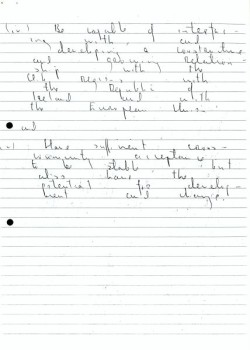 (iv) Be capable of interfac-
ing with and
developing a constructive
and growing relation-
ship with the
with
the Republic of
Ireland and with
the European Union
and
(v) Have sufficient cross-
community acceptance
to be stable but
also have the
potential for develop-
ment and change.